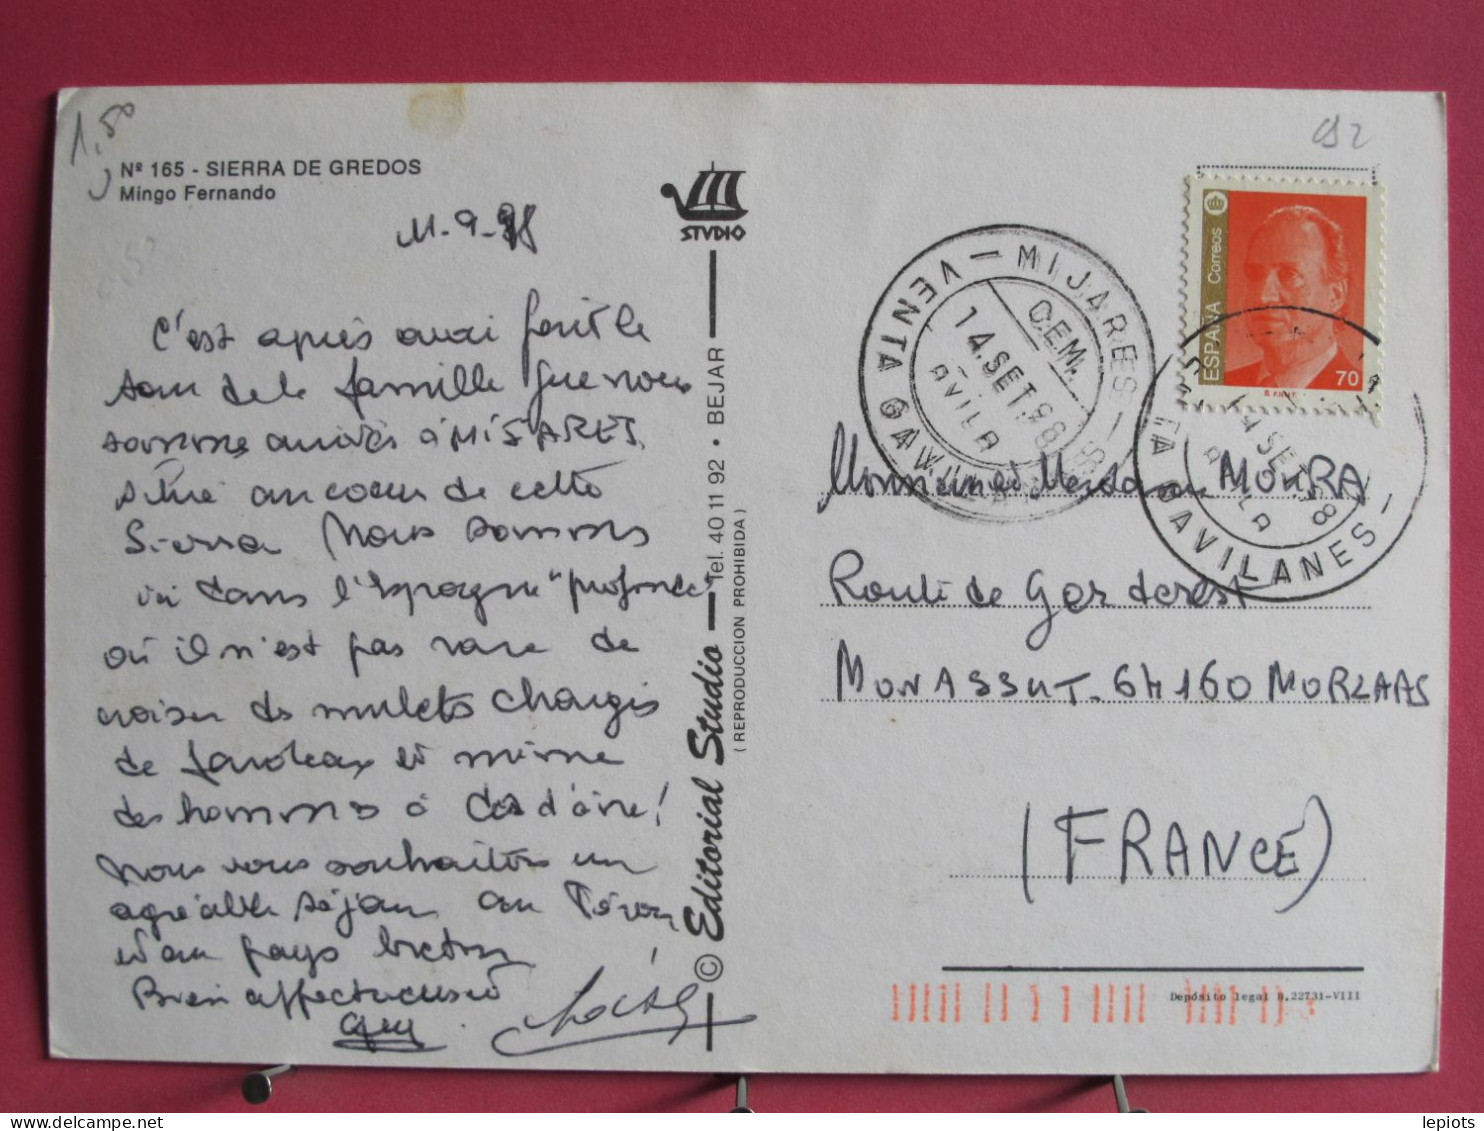 1,50
Nº 165 - SIERRA DE GREDOS
Mingo Fernando
11-9-98
C'est après avoir fait le
tour de la famille que nous
sommes arrivés à MISARES,
situé au coeur de cette
Sierra. Nous sommes
ici dans l'Espagne "profonde"
où il n'est pas rare de
croiser des mulets chargés
de fardeaux et même
des hommes à dos d'âne!
Nous vous souhaitons un
agréable séjour au
et au pays breton
Bien affectueusement
STVDIO
© Editorial Studio — Tel. 40 11 92 • BEJAR
( REPRODUCCION PROHIBIDA )
VENTA GAVILANES — MIJARES —
O.E.M.
14.SET.98
AVILA
ESPAÑA Correos
70
14 SET 98
AVILA
VENTA GAVILANES —
Monsieur et Madame MOURA
Route de Gerderest
MONASSUT. 64160 MORLAAS
(FRANCE)
Depósito legal B.22731-VIII
lepiots